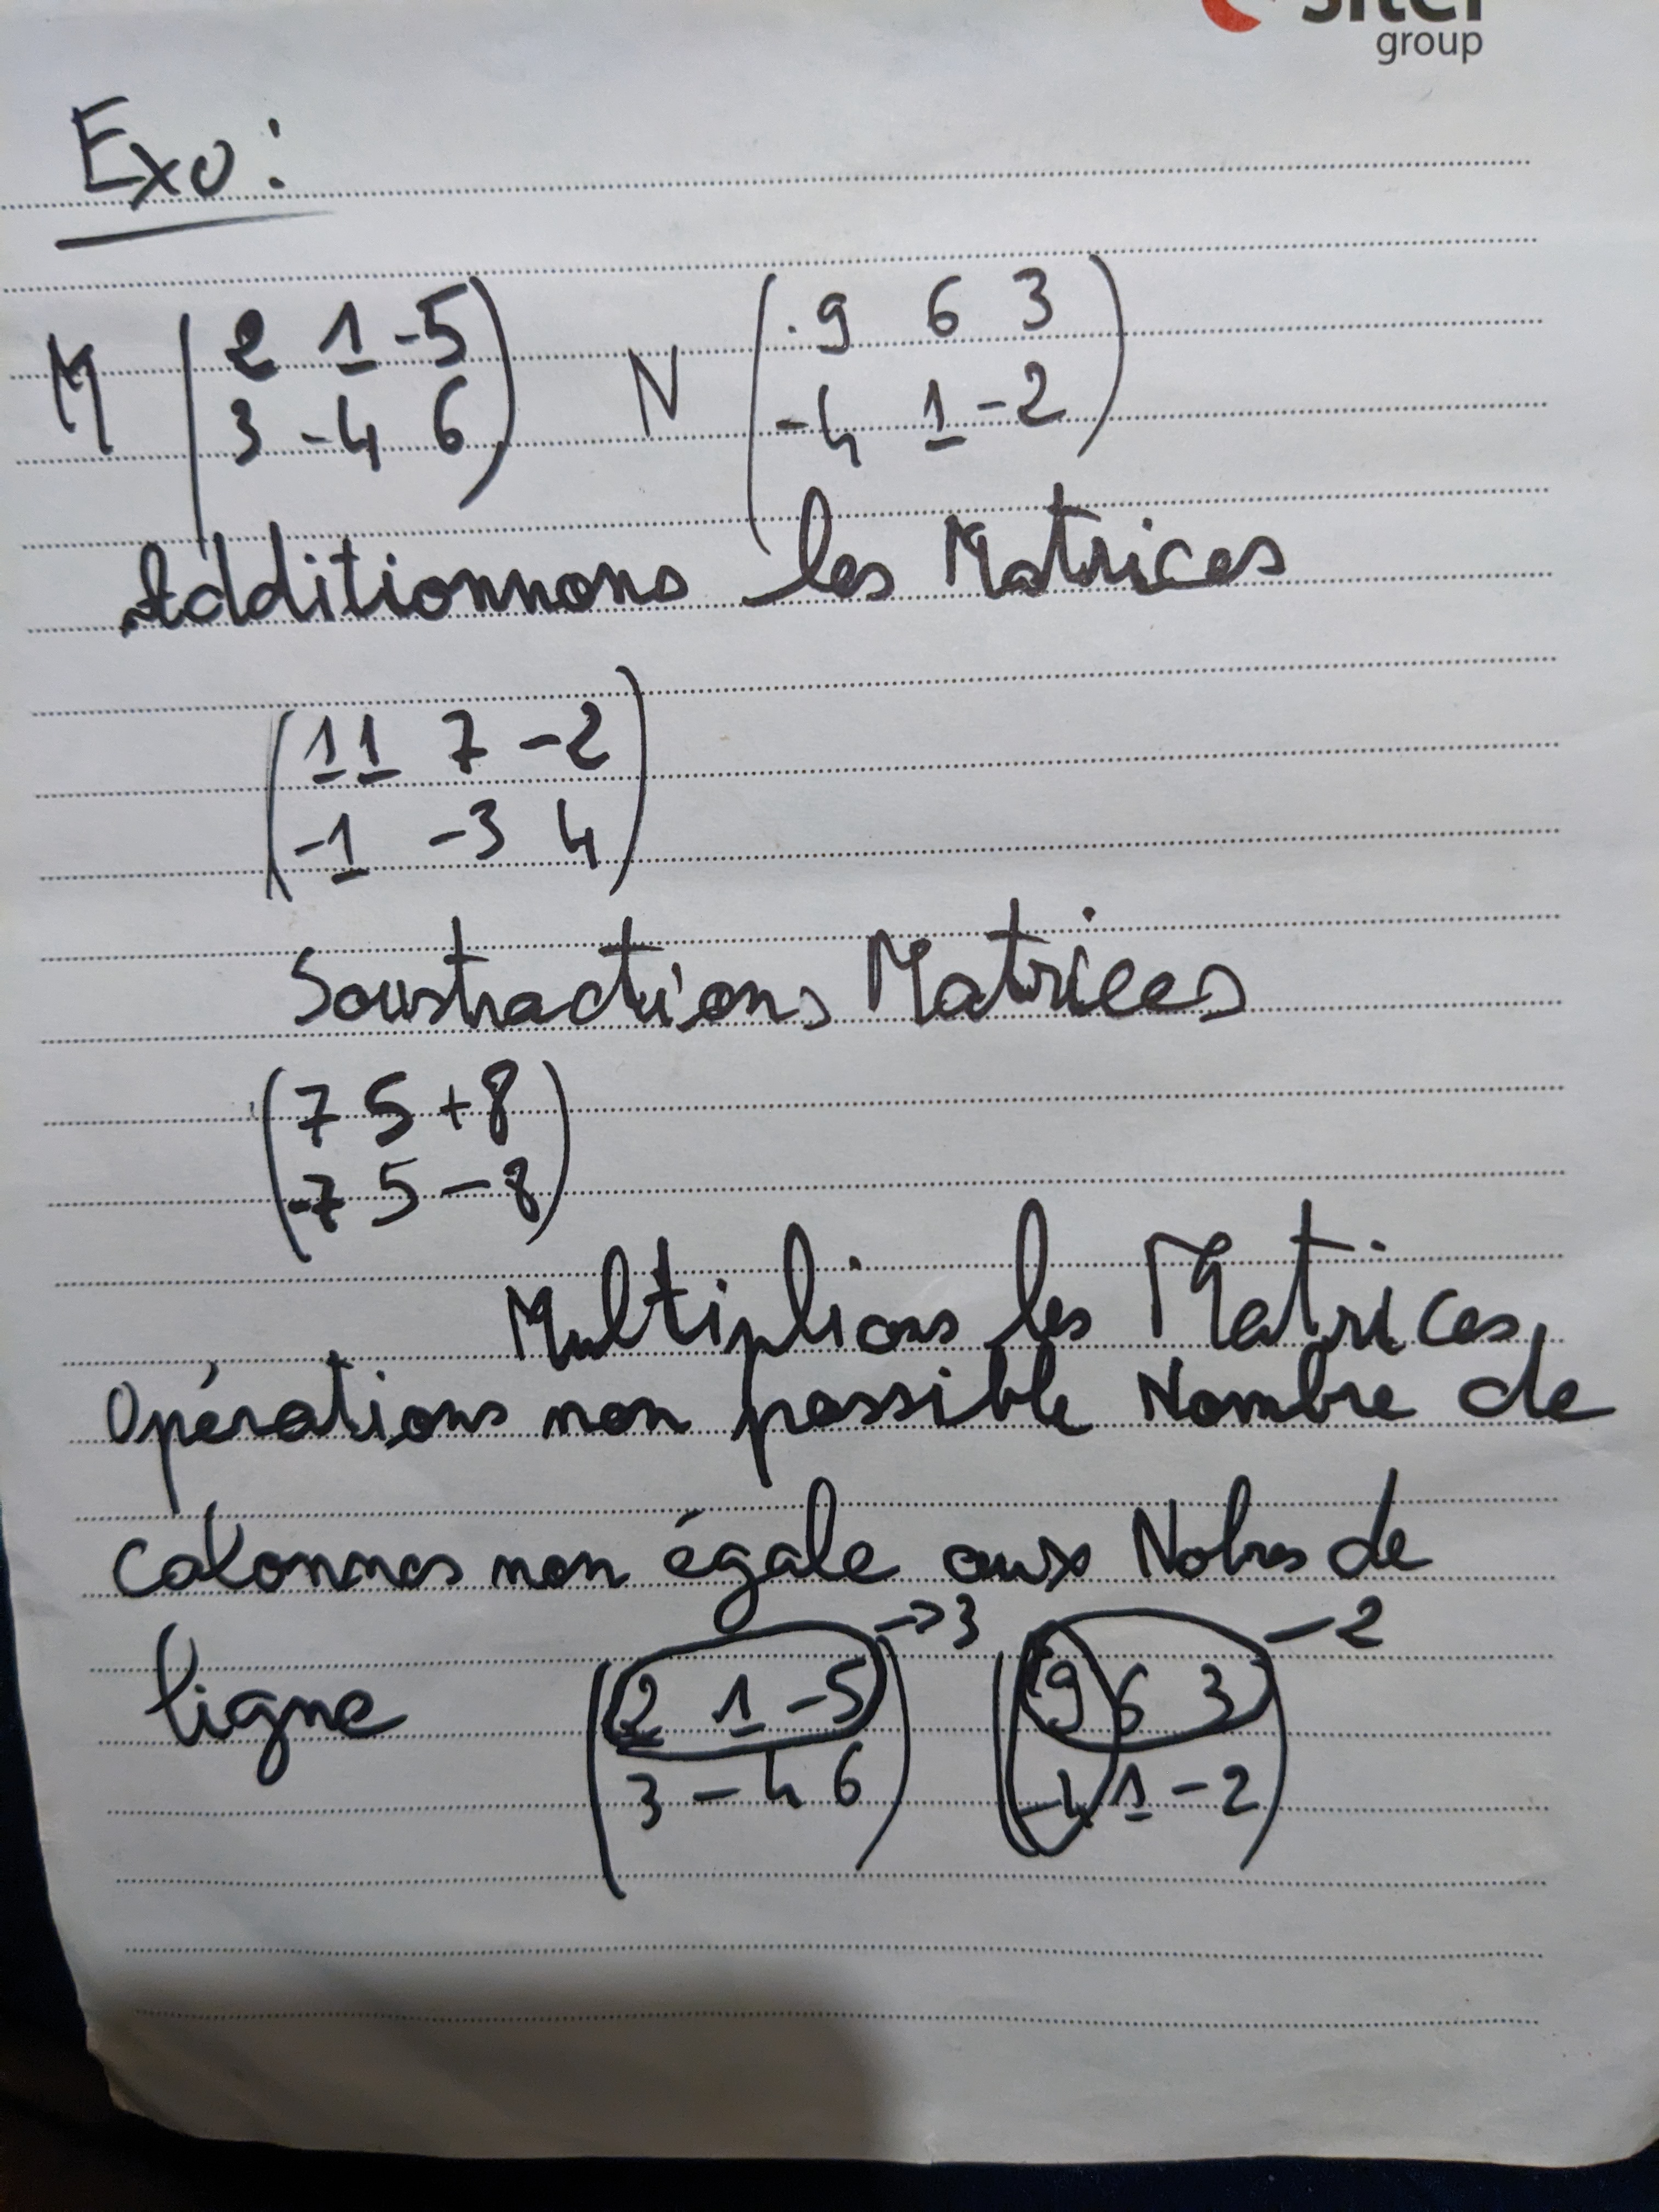 group
Exo:
M ( 2 1 -5 ) N ( 9 6 3 )
( 3 -4 6 ) ( -4 1 -2 )
Additionnons les Matrices
( 11 7 -2 )
( -1 -3 4 )
Soustractions Matrices
( 7 5 +8 )
( -7 5 -8 )
Multiplions les Matrices
Opérations non possible Nombre de
colonnes non égale aux Nobres de
ligne ( 2 1 -5 ) -> 3 ( 9 6 3 ) - 2
( 3 -4 6 ) ( -4 1 -2 )